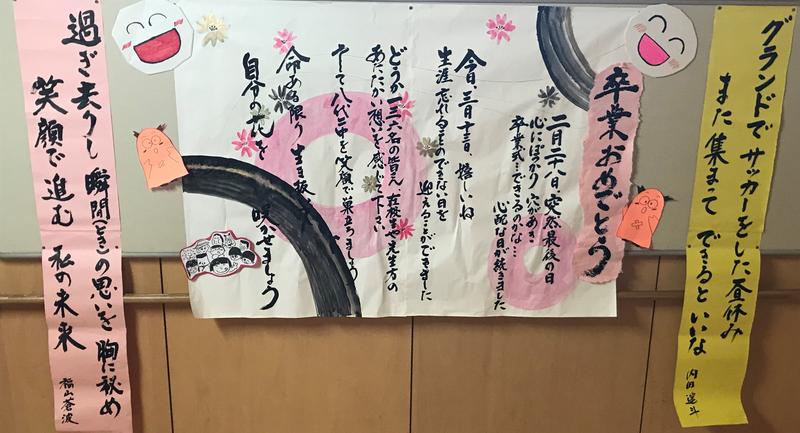 グランドで サッカーをした昼休み
また 集まって できるといいな
卒業おめでとう
二月二十八日、突然最後の日
心にぽっかり穴があき
卒業式…できるのかな…
心配な日が続きました
今日、三月十三日、嬉しいね
生涯忘れることのできない日を
迎えることができました
どうか一三六名の皆さん 在校生や先生方の
あたたかい想いを感じて下さい
そして八代二中を笑顔で巣立ちましょう
命ある限り 生き抜
自分の花を 咲かせましょう
過ぎ去りし 瞬間(とき)の思いを 胸に秘め
笑顔で進む 私の未来
福山蒼波